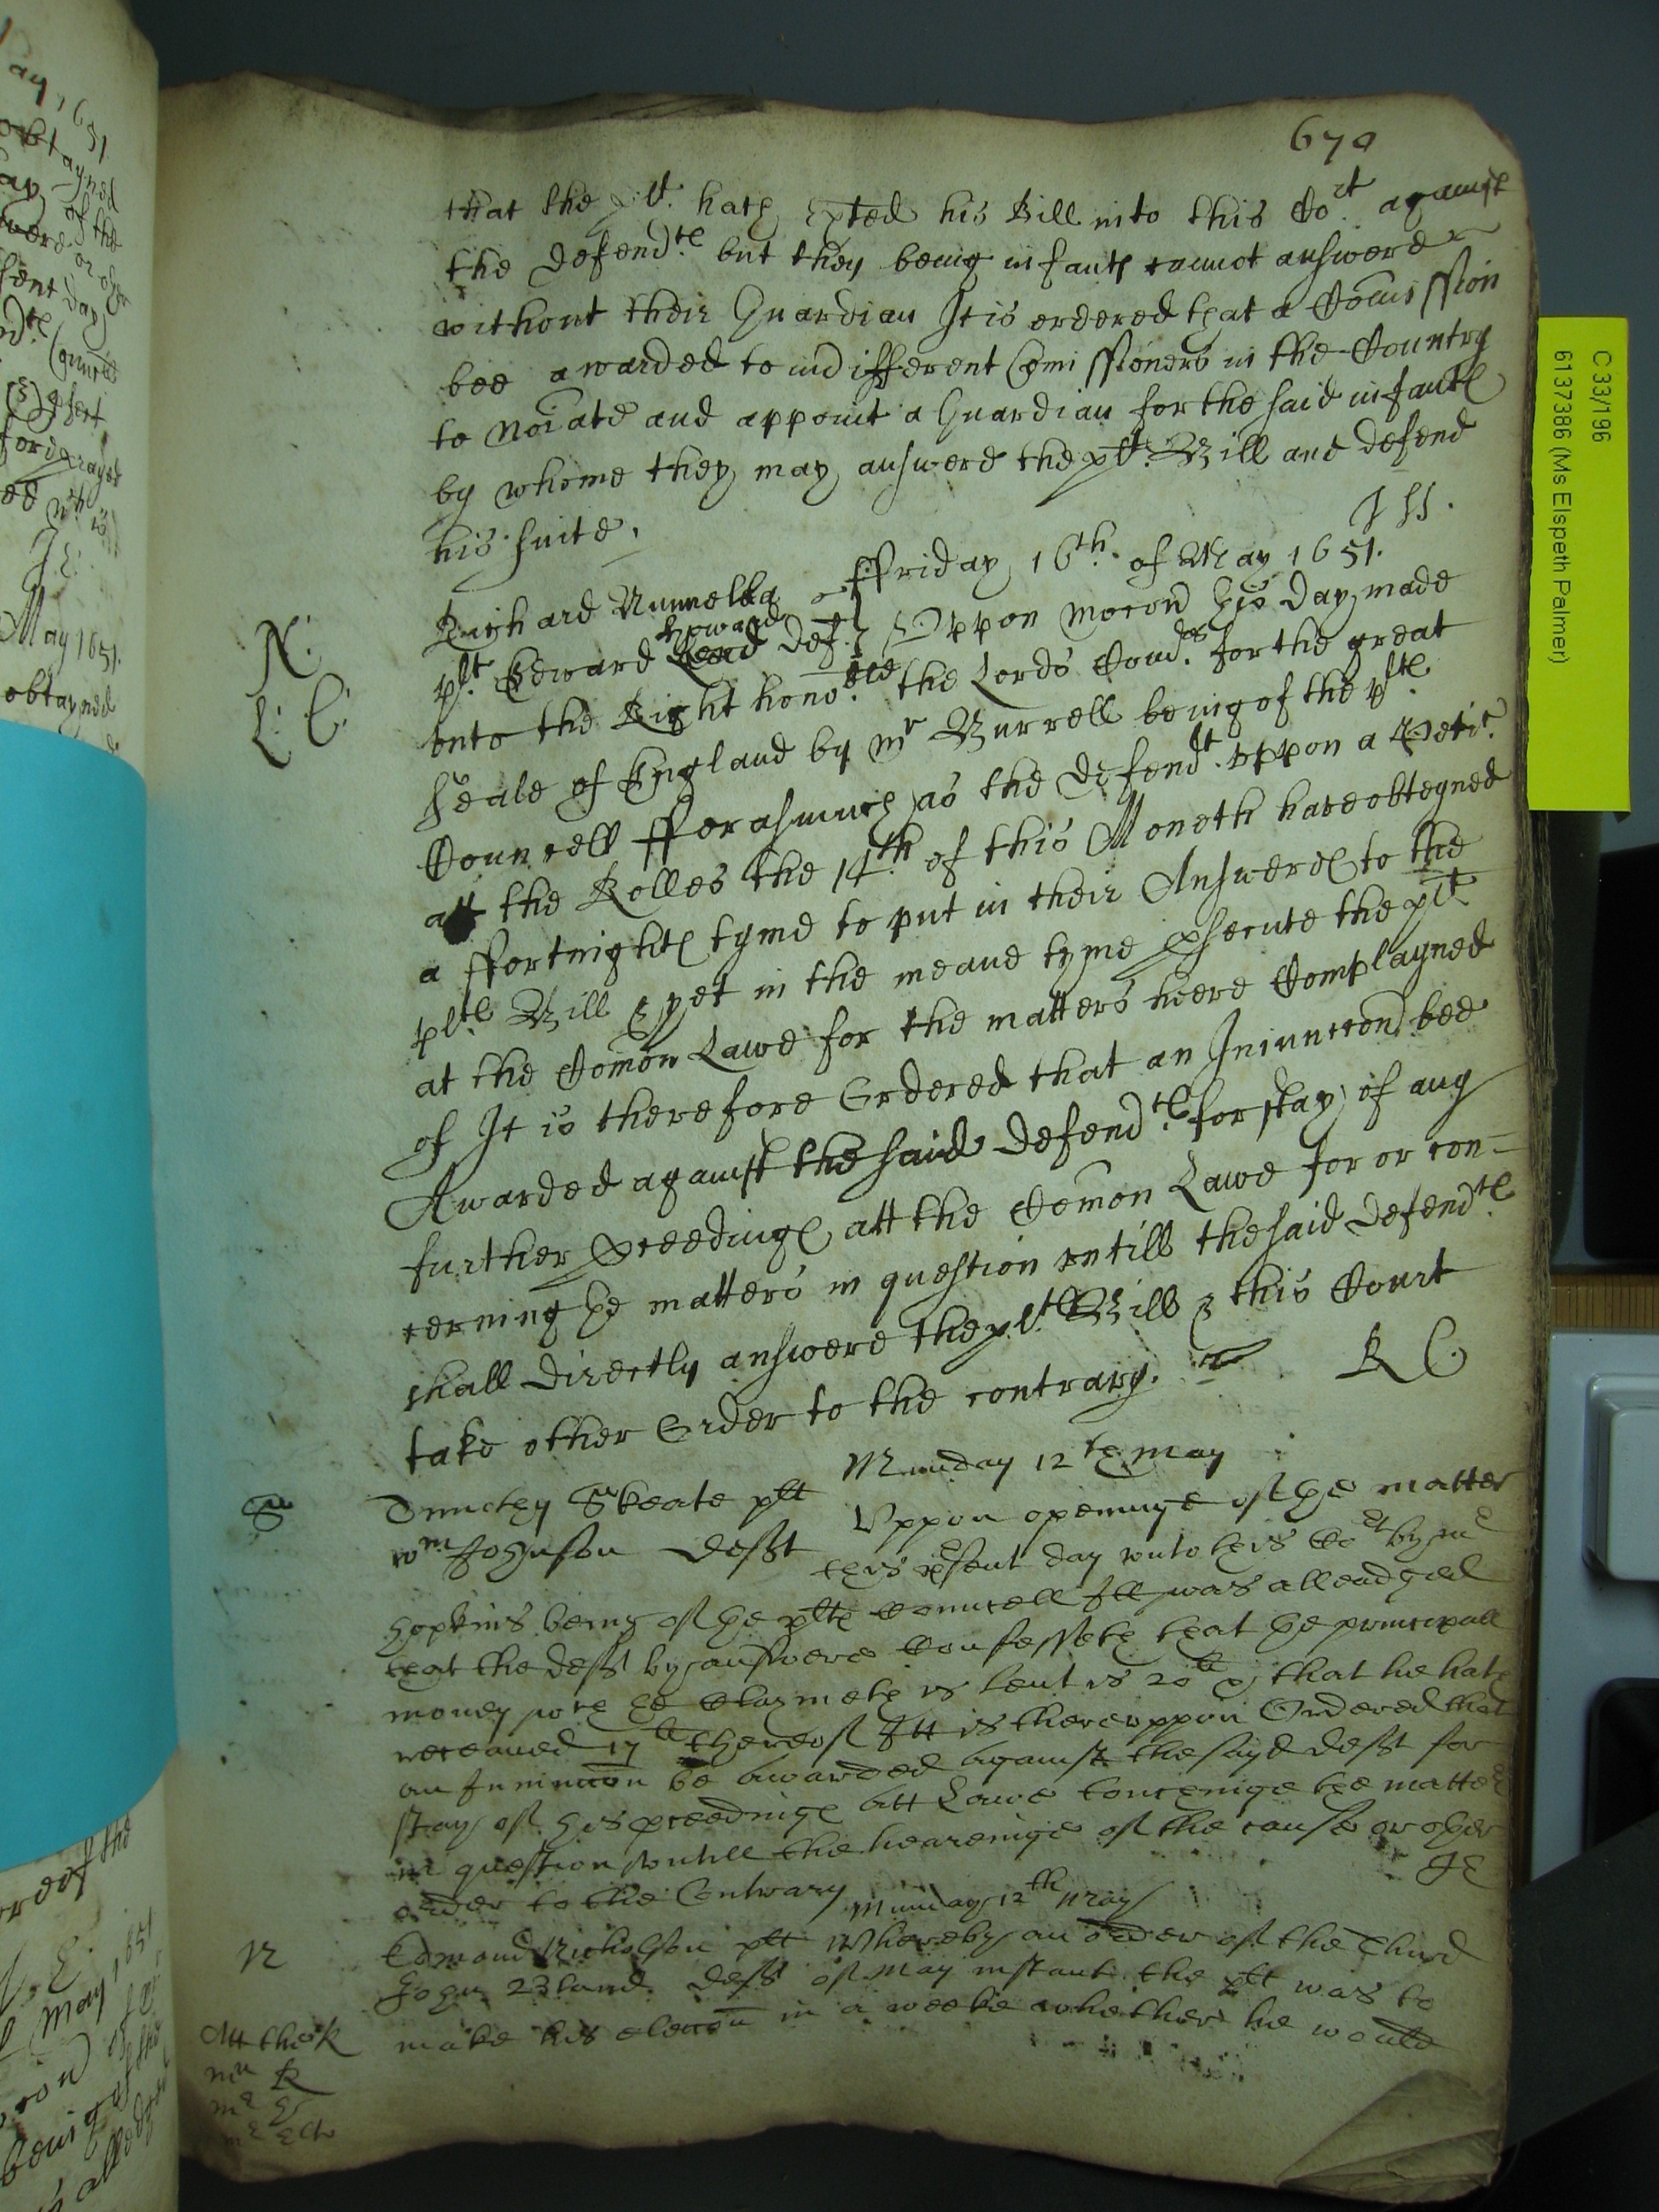 670
that the plt. hath exted his Bill into this Cort. against
the Defendtes but they being infantes cannot answere
without their Guardian It is ordered that a Comission
bee awarded to indifferent Comissioners in the Country
to Noiate and appoint a Guardian for the said infantes
by whome they may answere the plt. Bill and defend
his suite.
ffriday 16th. of May 1651.
N.
L: C:
Richard Nunnelly
plt. Edward Howard Def. Uppon mocon this Day made
unto the Right honoble the Lords Comrs. for the great
Seale of England by mr Burrell being of the pltes
Councell fforasmuch as the Defendt. uppon a Petir.
att the Rolles the 14th of this Moneth have obteyned
a ffortnightes tyme to put in their Answeres to the
pltes Bill & yet in the meane tyme psecute the plt
at the Comon Lawe for the matters heere Complayned
of It is therefore Ordered that an Iniunccon bee
Awarded against the said Defendtes. for stay of any
further pceedinges att the Comon Lawe for or con=
cerning the matters in question untill the said Defendtes.
shall directly answere the pltes. Bill & this Court
take other Order to the contrary. R C
Munday 12th may
Sk
Timothy Skeate plt
Wm Johnson Defft
Uppon openinge of the matter
this psent day unto this Cort by mr
Hopkins being of the pltes Councell Itt was alleadged
that the defft by answere Confesseth that the principall
money wch he Claymeth is lent is 20li & that he hath
receaved 17li thereof Itt is thereuppon Ordered that
an Iniunccon be awarded against the sayd defft for
stay of his pceedinges att Lawe concerninge the matter
in question untill the hearinge of the cause or other
order to the Contrary
Munday 12th May
N
Edmond Nicholson plt Whereby an order of the Third
John Bland Defft of May instant the plt was to
make his eleccon in a weeke whether he would
Att the R
C 33/196
6137386 (Ms Elspeth Palmer)
May 1651.
obtayned